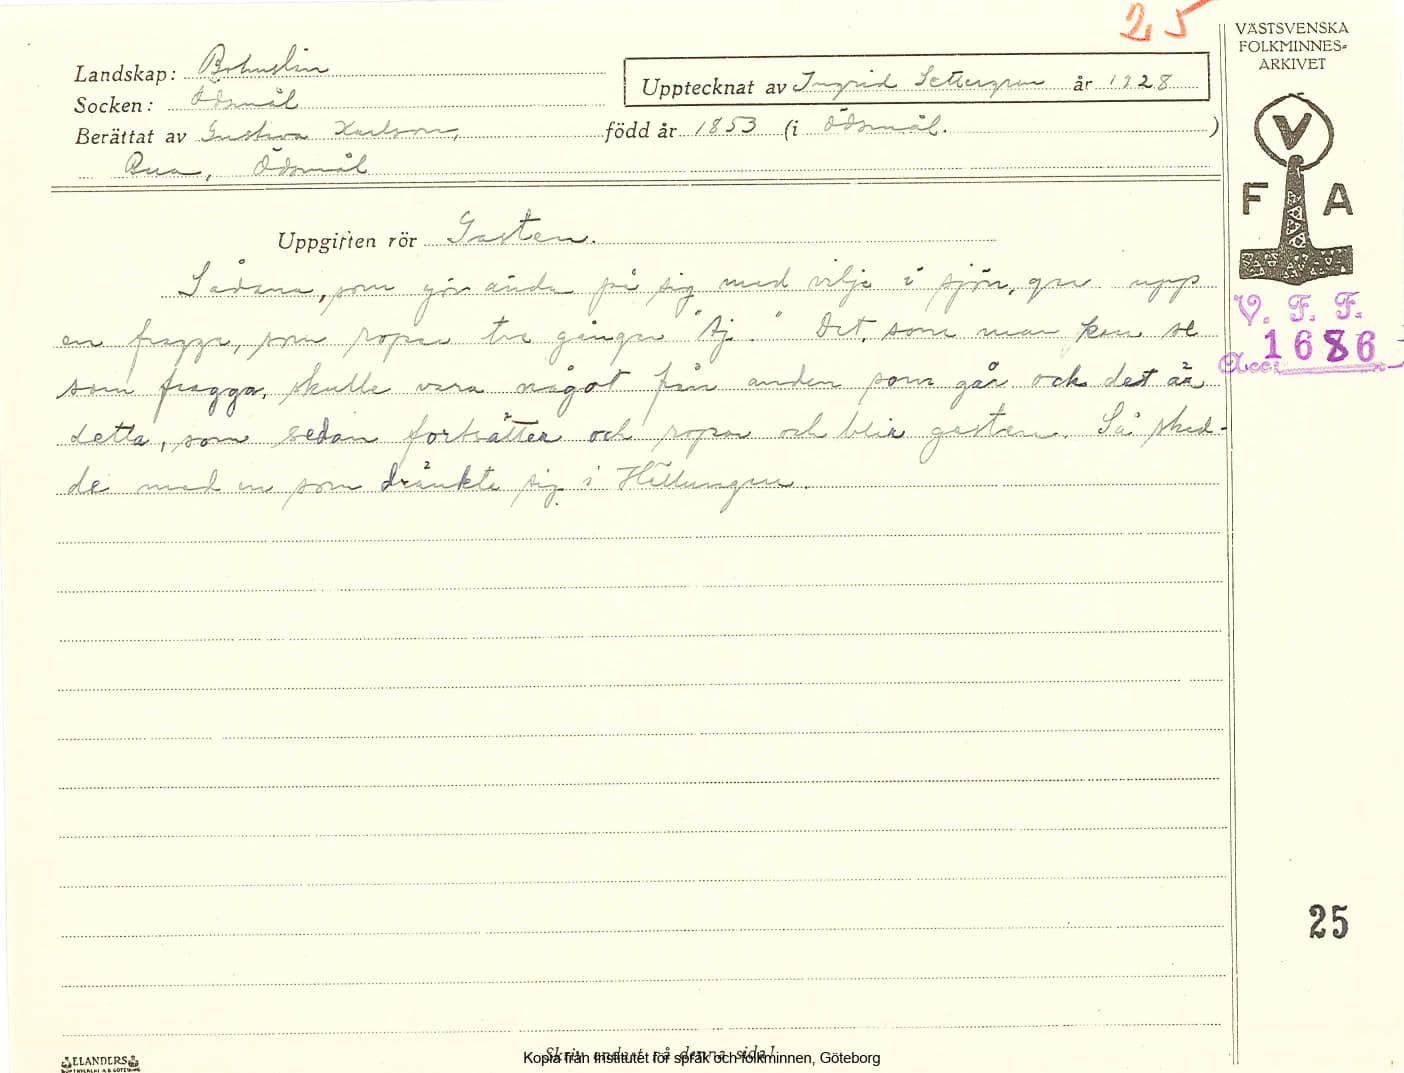 25
VÄSTSVENSKA
FOLKMINNES-
ARKIVET
Landskap: Bohuslän
Socken: Ödsmål
Upptecknat av Ingrid Settergren år 1928
Berättat av Gustava Karlson, född år 1853 (i Ödsmål.)
Rua, Ödsmål
V
F A
Uppgiften rör Gasten.
Sådana, som gör ända på sig med vilje i sjön, ger upp
en fragga, som ropar tre gånger "Aj." Det, som man kan se
som fragga, skulle vara något från anden som går och det är
detta, som sedan fortsätter och ropar och blir gasten. Så sked-
de med en som dränkte sig i Hällungen.
V. F. F.
Acc: 1686
25
Skriv endast på denna sida!
ELANDERS
Kopia från Institutet för språk och folkminnen, Göteborg